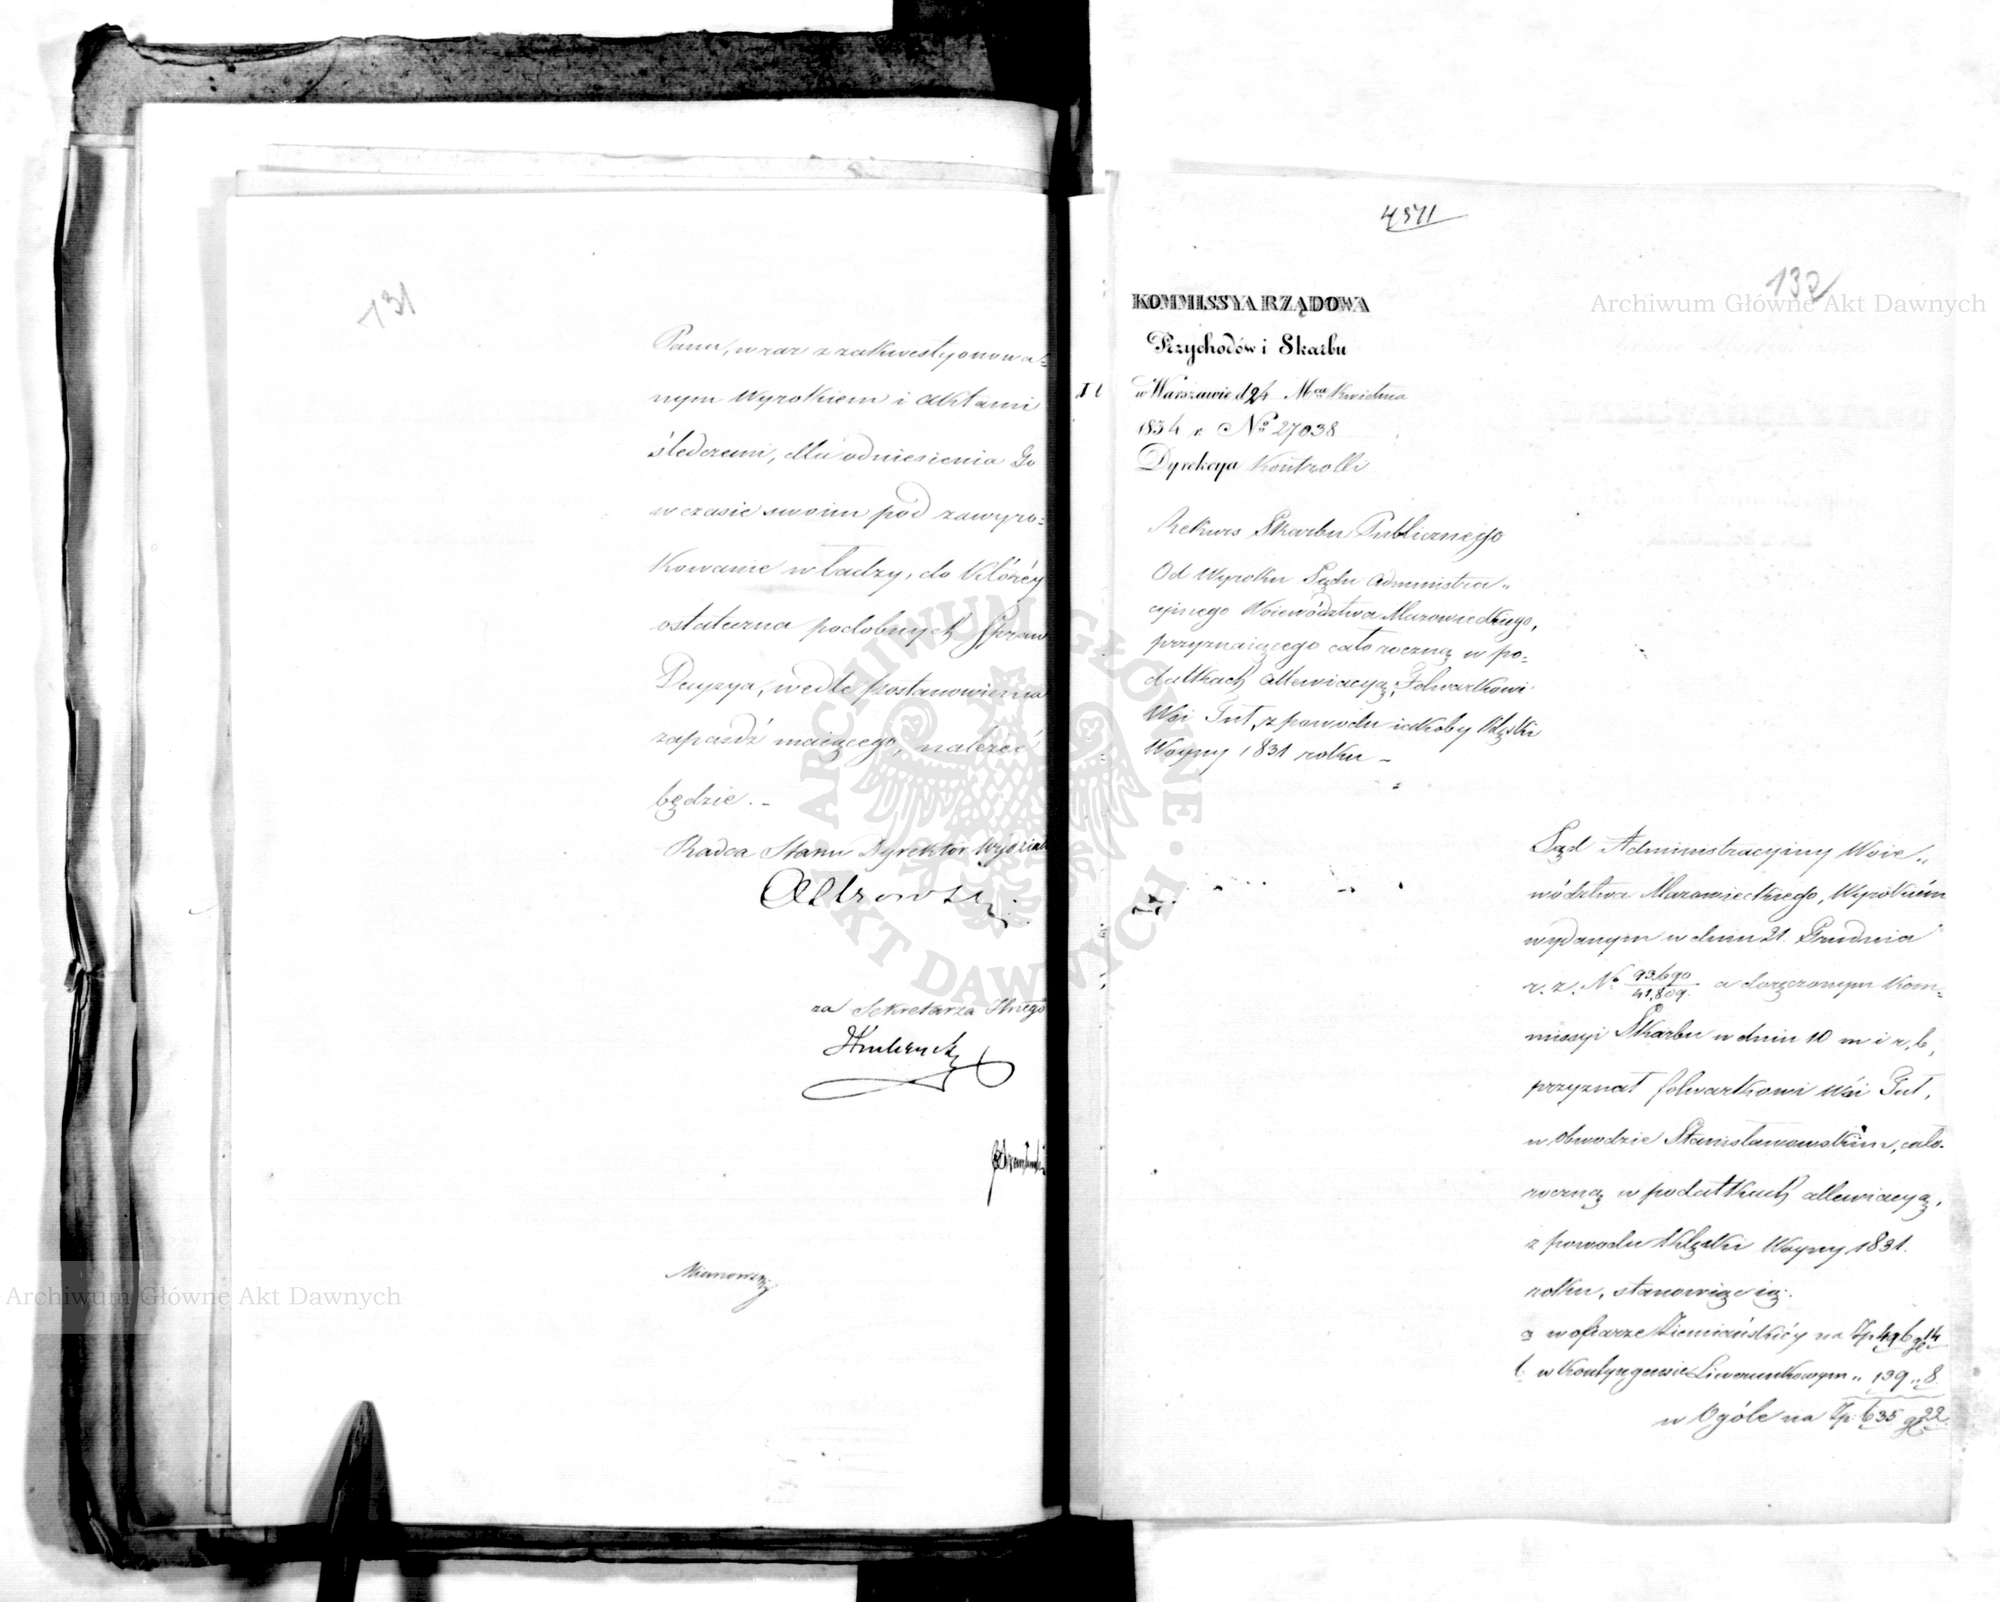 131
Panu, wraz z zakwestyonowa=
nym Wyrokiem i Aktami
śledczemi, dla odniesienia Go
w czasie swoim pod zawyro=
kowanie władzy, do któréy
ostateczna podobnych Spraw
Decyzya, wedle postanowienia
zapaśdź maiącego, należeć
będzie. _
Radca Stanu Dyrektor Wydziału
za Sekretarza Jlnego
4571
132
KOMMISSYA RZĄDOWA
Przychodów i Skarbu
w Warszawie d 24 Mca Kwietnia
1834 r. No 27038
Dyrekcya Kontrolli
Rekurs Skarbu Publicznego
Od Wyroku Sądu Administra„
cyinego Województwa Mazowieckiego,
przyznaiącego całoroczną w po=
datkach allewiacyą, Folwarkowi
Wói Jut, z powodu iakoby klęski
Woyny 1831 roku _
Sąd Administracyiny Woie„
wództwa Mazowieckiego, Wyrokiem
wydanym w dniu 21. Grudnia
r. z. No 93690/41,809. a doręczonym Kom=
missyi Skarbu w dniu 10 m i r. b,
przyznał folwarkowi Wói Jut,
w Obwodzie Stanisławowskim, cało-
roczną w podatkach allewiacyą,
z powodu klęski Woyny 1831.
roku, stanowiącą:
a w ofiarze Ziemiańskiéy na Zp. 496 gr 14
b. w Kontyngensie Liwerunkowym „ 139 „ 8
w Ogóle na Zp. 635 gr 22
Archiwum Główne Akt Dawnych
Archiwum Główne Akt Dawnych
ARCHIWUM GŁÓWNE AKT DAWNYCH